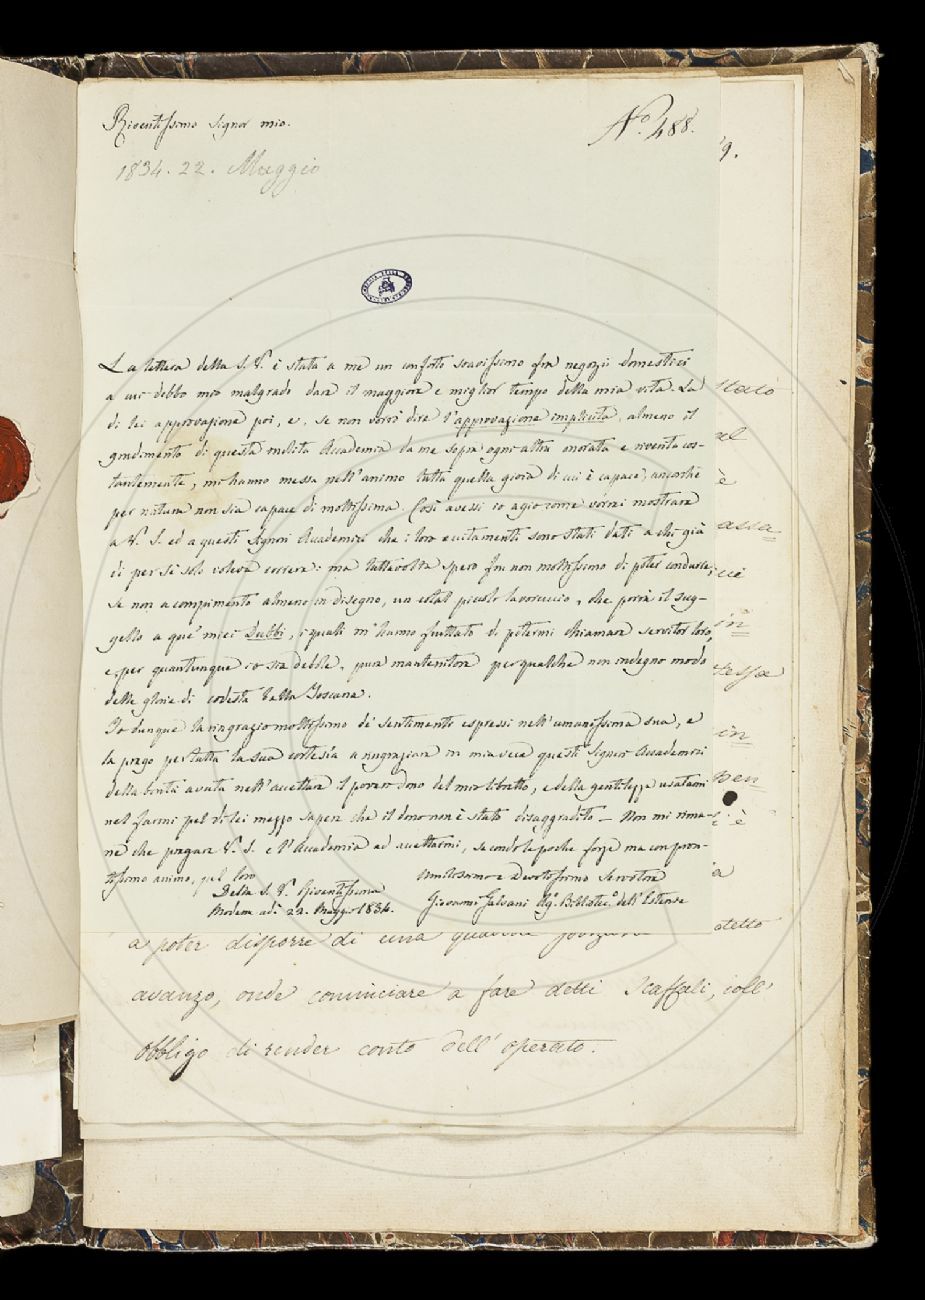 Riveritissimo Signor mio.
N.º 488.
1834. 22. Maggio
9.
La lettera della S. V. è stata a me un conforto soavissimo fra negozii domestici
a cui debbo mio malgrado dare il maggiore e miglior tempo della mia vita. La
di lei approvazione poi, e, se non vorrò dire l'approvazione implicita, almeno il
gradimento di questa inclita Accademia da me sopra ogni altra onorata e riverita cos-
tantemente, mi hanno messa nell'animo tutta quella gioia di cui è capace, ancorchè
per natura non sia capace di moltissima. Così avessi io agio come vorrei mostrare
a V. S. ed a questi Signori Accademici che i loro eccitamenti sono stati dati a chi già
di per sè solo voleva correre: ma tuttavolta spero fra non moltissimo di poter condurre,
se non a compimento almeno in disegno, un cotal piccolo lavoruccio, che porrà il sug-
gello a que' miei Dubbi, i quali m'hanno fruttato di potermi chiamare servitor loro,
e, per quantunque io sia debole, pure mantenitore per qualche non indegno modo
delle glorie di codesta bella Toscana.
Io dunque la ringrazio moltissimo de' sentimenti espressi nell'umanissima sua, e
la prego per tutta la sua cortesia a ringraziare in mia vece questi Signori Accademici
della bontà avuta nell'accettare il povero dono del mio libretto, e della gentilezza usatami
nel farmi pel di lei mezzo sapere che il dono non è stato disaggradito – Non mi rima-
ne che pregare V. S. e l'Accademia ad accettarmi, secondo le poche forze ma con pron-
tissimo animo, pel loro
Della S. V. Riveritissima
Modena adì 22. Maggio 1834.
Umilissimo e Devotissimo Servitore
Giovanni Galvani Bibliotec.º dell'Estense
stato
al
è
assa
in
stessa
in
pen
è
a
a poter disporre di una qualche
detto
avanzo, onde cominciare a fare detti Scaffali, coll'
obbligo di render conto dell'operato.